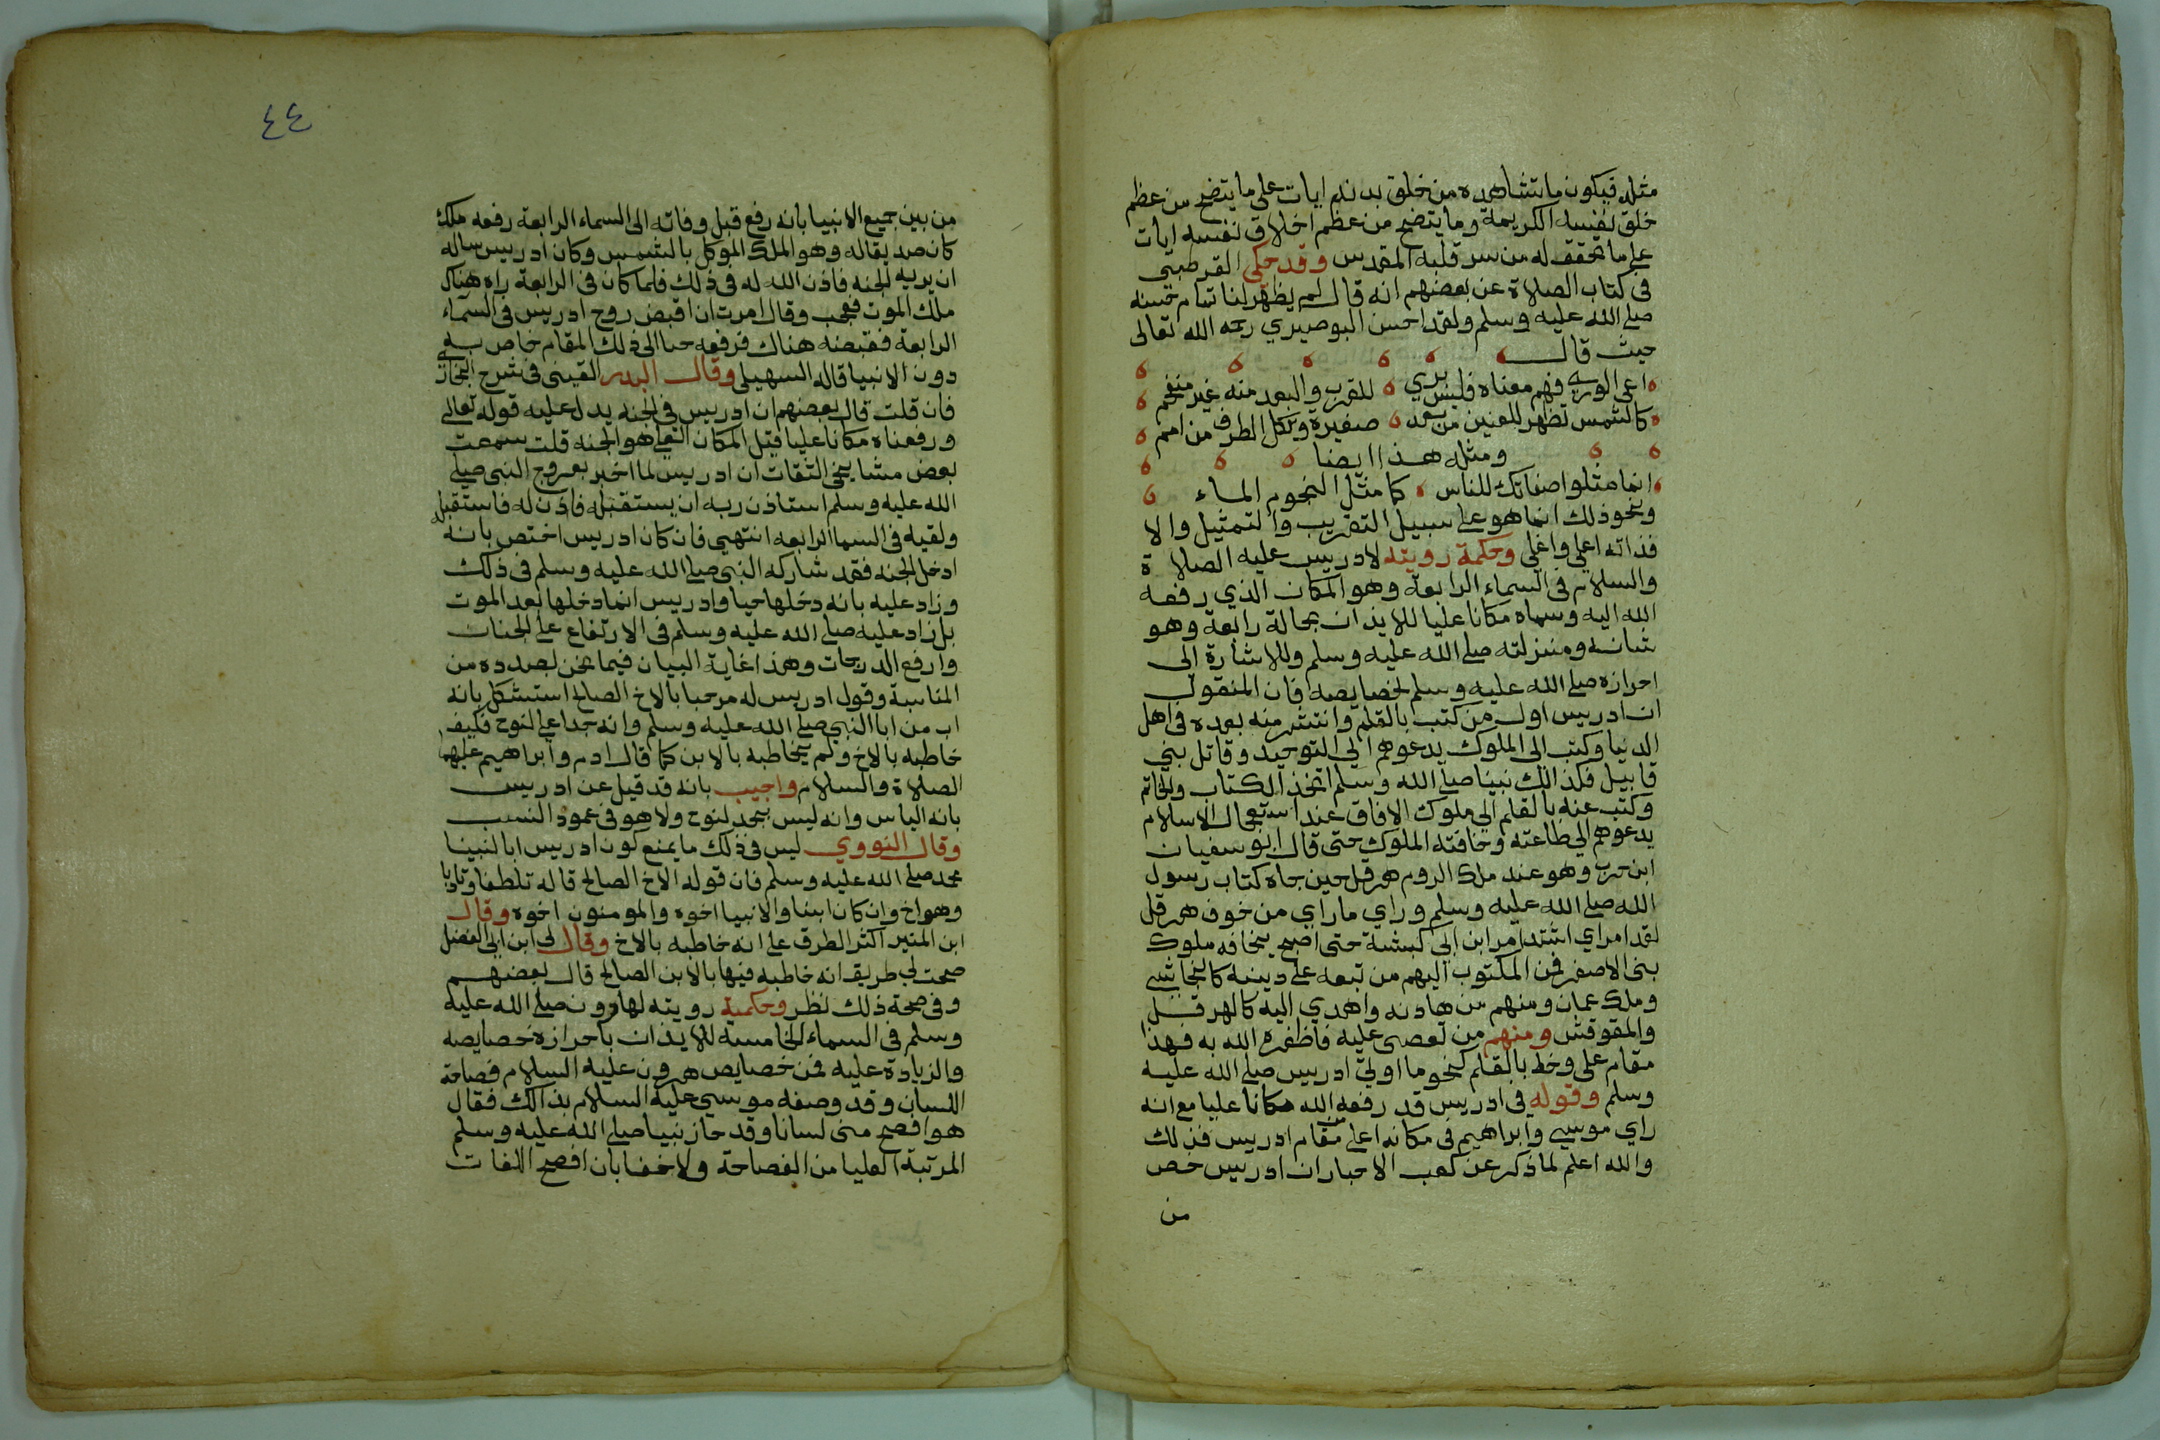 مثله فيكون ما يشاهده من خلق بدنه ايات على ما يتضح من عظم
خلق نفسه الكريمة وما يتضح من عظم اخلاق نفسه ايات
على ما تحقق له من سر قلبه المقدس وقد حكى القرطبي
في كتاب الصلاة عن بعضهم انه قال لم يظهر لنا تمام حسنه
صلى الله عليه وسلم ولقد احسن البوصيري رحمه الله تعالى
حيث قال
اعى الورى فهم معناه فليس يري للقرب والبعد منه غير منفحم
كالشمس تظهر للعينين من بعد صغيرة وتكل الطرف من امم
ومثله هذا ايضا
انما مثلوا صفاتك للناس كما مثل النجوم الماء
ونحو ذلك انما هو على سبيل التقريب والتمثيل والا
فذاته اعلى واغلى وحكمة رويته لادريس عليه الصلاة
والسلام في السماء الرابعة وهو المكان الذي رفعه
الله اليه وسماه مكانا عليا للايذان بحالة رابعة وهو
شانه ومنزلته صلى الله عليه وسلم وللاشارة الى
احرازه صلى الله عليه وسلم لخصايصه فان المنقول
ان ادريس اول من كتب بالقلم وانتشر منه بعده في اهل
الدنيا وكتب الى الملوك يدعوهم الى التوحيد وقاتل بني
قابيل فكذلك نبينا صلى الله وسلم اتخذ الكتاب والخاتم
وكتب عنه بالقلم الى ملوك الافاق عند استعجال الاسلام
يدعوهم الى طاعته وخافته الملوك حتى قال ابو سفيان
ابن حرب وهو عند ملك الروم هرقل حين جاه كتاب رسول
الله صلى الله عليه وسلم وراي ما راي من خوف هرقل
لقد امر اي اشتد امر ابن ابي كبشة حتى اصبح يخافه ملوك
بني الاصفر فمن المكتوب اليهم من تبعه على دينه كالنجاشي
وملك عمان ومنهم من هادنه واهدي اليه كالهرقل
والمقوقش ومنهم من تعصى عليه فاظفره الله به فهذا
مقام علي وخط بالقلم كنحو ما اوتي ادريس صلى الله عليه
وسلم وقوله في ادريس قد رفعه الله مكانا عليا مع انه
راي موسى وابراهيم في مكانه اعلى من مقام ادريس فذلك
والله اعلم لما ذكر عن كعب الاحبار ان ادريس خص
من
٤٤
من بين جميع الانبيا بانه رفع قبل وفاته الى السماء الرابعة رفعه ملك
كان صديقا له وهو الملك الموكل بالشمس وكان ادريس ساله
ان يريه الجنه فاذن الله له في ذلك فلما كان في الرابعة راه هناك
ملك الموت فعجب وقال امرت ان اقبض روح ادريس في السماء
الرابعة فقبضه هناك فرفعه حيا الى ذلك المقام خاص به
دون الانبيا قاله السهيلي وقال البدر العيني في شرح البخاري
فان قلت قال بعضهم ان ادريس في الجنه يدل عليه قوله تعالى
ورفعناه مكانا عليا قيل المكان العلي هو الجنه قلت سمعت
بعض مشايخي الثقات ان ادريس لما اخبر بعروج النبي صلى
الله عليه وسلم استاذن ربه ان يستقبله فاذن له فاستقبله
ولقيه في السما الرابعه انتهى فان كان ادريس اختص بانه
ادخل الجنه فقد شاركه النبي صلى الله عليه وسلم في ذلك
وزاد عليه بانه دخلها حيا وادريس انما دخلها بعد الموت
بل زاد عليه صلى الله عليه وسلم في الارتفاع على الجنات
وارفع الدرجات وهذا غاية البيان فيما نحن بصدده من
المناسبة وقول ادريس له مرحبا بالاخ الصالح استشكل بانه
اب من ابا النبي صلى الله عليه وسلم وانه جد اعلى لنوح فكيف
خاطبه بالاخ ولم يخاطبه بالابن كما قال ادم وابراهيم عليهما
الصلاة والسلام واجيب بانه قد قيل عن ادريس
بانه الياس وانه ليس بجد لنوح ولا هو في عمود النسب
وقال النووي ليس في ذلك ما يمنع كون ادريس ابا لنبينا
محمد صلى الله عليه وسلم فان قوله الاخ الصالح قاله تلطفا وتادبا
وهو اخ وان كان ابنا والانبيا اخوه والمومنون اخوه وقال
ابن المنير اكثر الطرق على انه خاطبه بالاخ وقال لي ابن ابي الفضل
صحت لي طريق انه خاطبه فيها بالابن الصالح قال بعضهم
وفي صحة ذلك نظر وحكمية رويته لهارون صلى الله عليه
وسلم في السماء الخامسه للايذان باحرازه خصايصه
والزيادة عليه فمن خصايص هرون عليه السلام فصاحة
اللسان وقد وصفه موسى عليه السلام بذلك فقال
هو افصح مني لسانا وقد حاز نبينا صلى الله عليه وسلم
المرتبة العليا من الفصاحة ولا خفا بان افصح اللغات